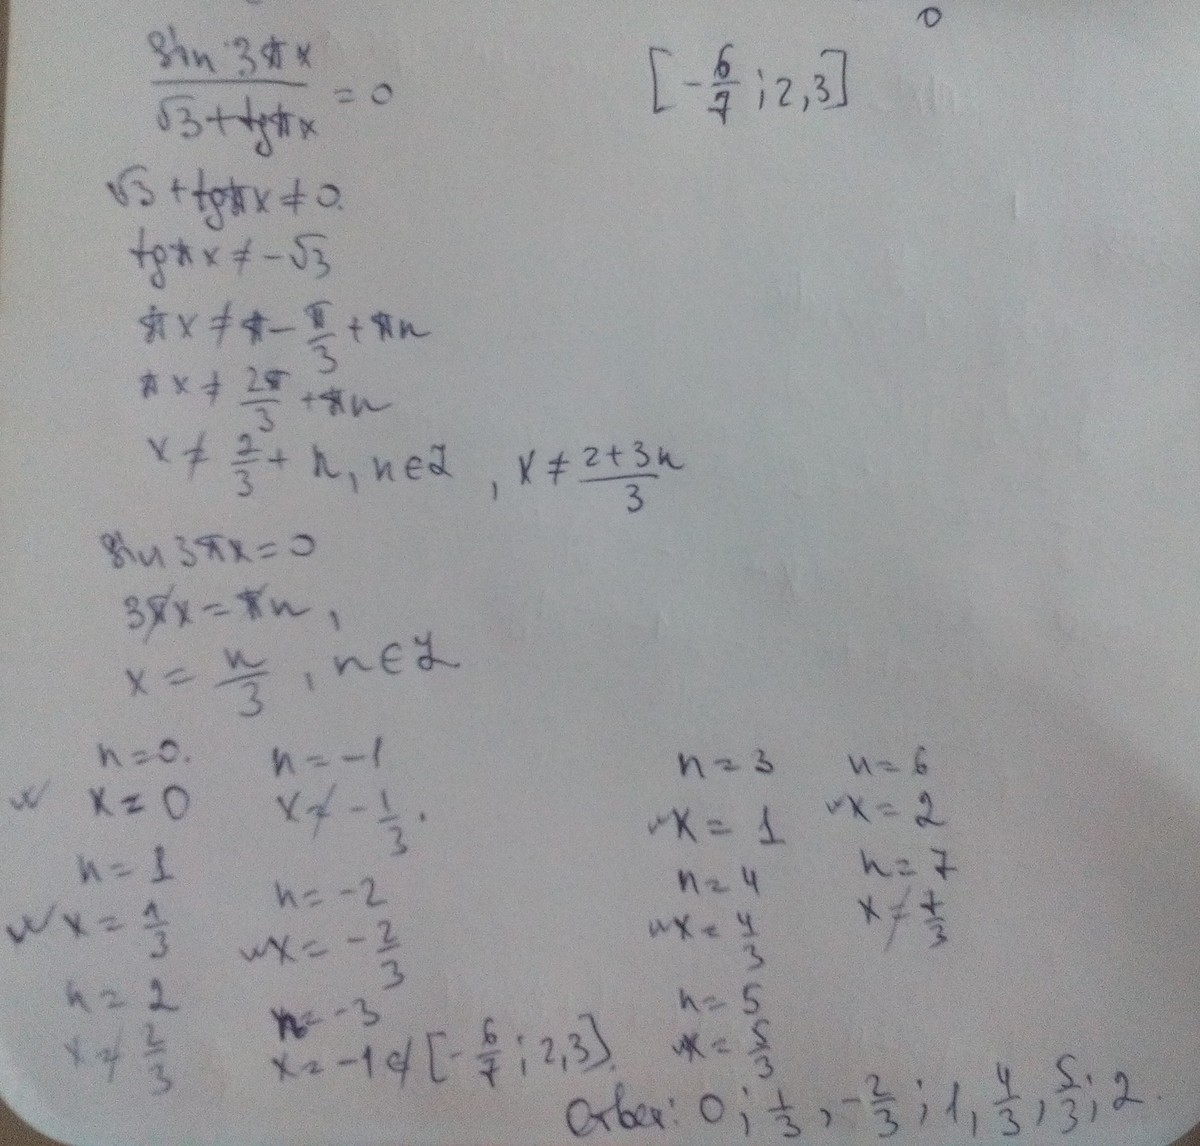 0
sin 3πx / √3 + tgπx = 0
[-6/7 ; 2,3]
√3 + tgπx ≠ 0.
tgπx ≠ -√3
πx ≠ π - π/3 + πn
πx ≠ 2π/3 + πn
x ≠ 2/3 + n, n ∈ Z , x ≠ 2+3n/3
sin 3πx = 0
3πx = πn,
x = n/3 , n ∈ Z
n = 0.
x = 0
n = 1
x = 1/3
n = 2
x ≠ 2/3
n = -1
x ≠ -1/3.
n = -2
x = -2/3
n = -3
x = -1 ∉ [-6/7 ; 2,3].
n = 3
x = 1
n = 4
x = 4/3
n = 5
x = 5/3
n = 6
x = 2
n = 7
x ≠ 7/3
Ответ: 0; 1/3, -2/3; 1, 4/3, 5/3; 2.